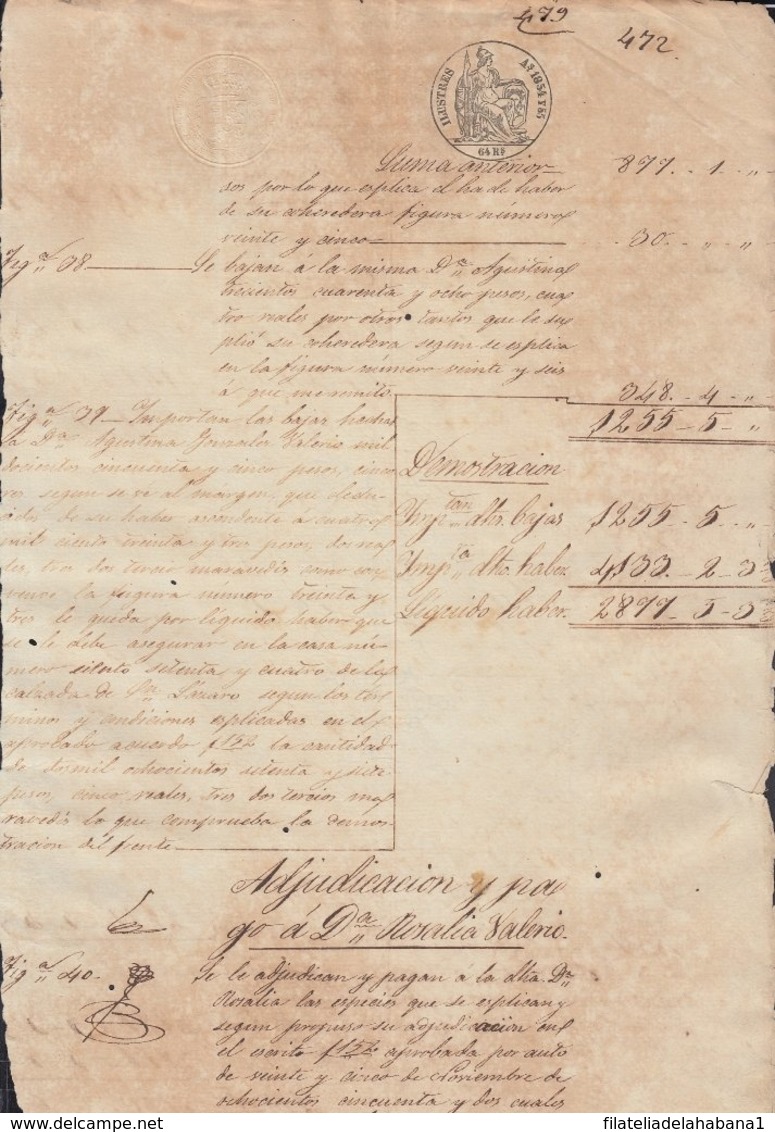 479
472
ILUSTRES Aˢ 1854 Y 55
64 Rˢ
Suma anterior 877 .. 1 .. "
dos por lo que esplica el ha de haber
de su coheredera figura número
veinte y cinco 30 .. " .. "
Figᵃ 38 Se bajan á la misma Dᵃ Agustina
trecientos cuarenta y ocho pesos, cua
tro reales por otros tantos que le su
plió su coheredera segun se esplica
en la figura número veinte y seis
á que me remito. 348 .. 4 .. "
1255 - 5 - "
Figᵃ 39 Importan las bajas hechas
á Dᵃ Agustina Gonzales Valerio mil
docientos cincuenta y cinco pesos, cinco
rs segun se ve al margen, que dedu
cidos de su haber acendente á cuatro
mil ciento treinta y tres pesos, dos rea
les, tres dos tercio maravedis como con
vence la figura número treinta y
tres le queda por líquido haber que
se le debe asegurar en la casa nú
mero ciento setenta y cuatro de la
calzada de Sⁿ Lázaro segun los tér
minos y condiciones esplicadas en el
aprobado acuerdo la cantidad
de dos mil ochocientos setenta y siete
pesos, cinco reales, tres dos tercios ma
ravedis lo que comprueba la demos
tracion del frente
Demostracion
Impᵗᵃⁿ dhs. bajas 1255 - 5 - "
Impᵗᵃ dho. haber 4133 .. 2 - 3
Líquido haber. 2877 - 5 - 3
Adjudicacion y pa
go á Dᵃ Rosalia Valerio
Figᵃ 40 Se le adjudican y pagan á la dha Dᵃ
Rosalia las especies que se esplican y
segun propuso su adjudicacion en
el escrito aprobada por auto
de veinte y cinco de Noviembre de
ochocientos cincuenta y dos cuales
filateliadelahabana1